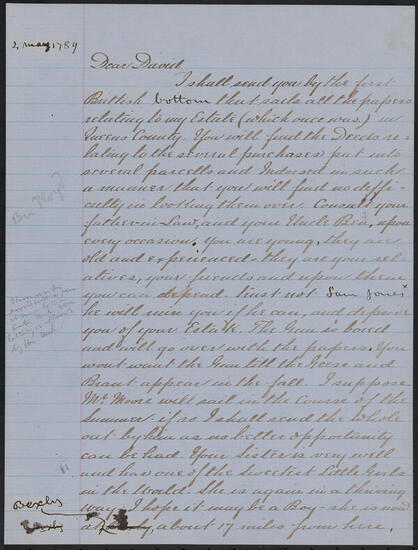 2 May 1789
Dear David
I shall send you by the first
British bottom that sails all the papers
relating to my Estate (which once was) in
Queens County. You will find the Deeds re-
lating to the several purchases put into
several parcells and Indorsed in such
a manner that you will find no diffi-
culty in looking them over. Consult your
father-in-Law, and your Uncle Ben, upon
every occasion. You are young, they are
old and experienced - they are your rel-
atives, your friends and upon them
you can depend. Trust not Sam Jones x
he will ruin you if he can, and deprive
you of your Estate. The Gun is bired
and will go over with the papers. You
wont want the Gun till the Geese and
Brant appear in the fall. I suppose
Mr. Moore will sail in the Course of the
Summer - if so I shall send the whole
out by him as no better opportunity
can be had. Your Sister is very well
and has one of the Sweetest Little Girls
in the World. She is again in a thriving
way. I hope it may be a Boy - she is now
Bexley
a about 17 miles from here,
Ben Floyd